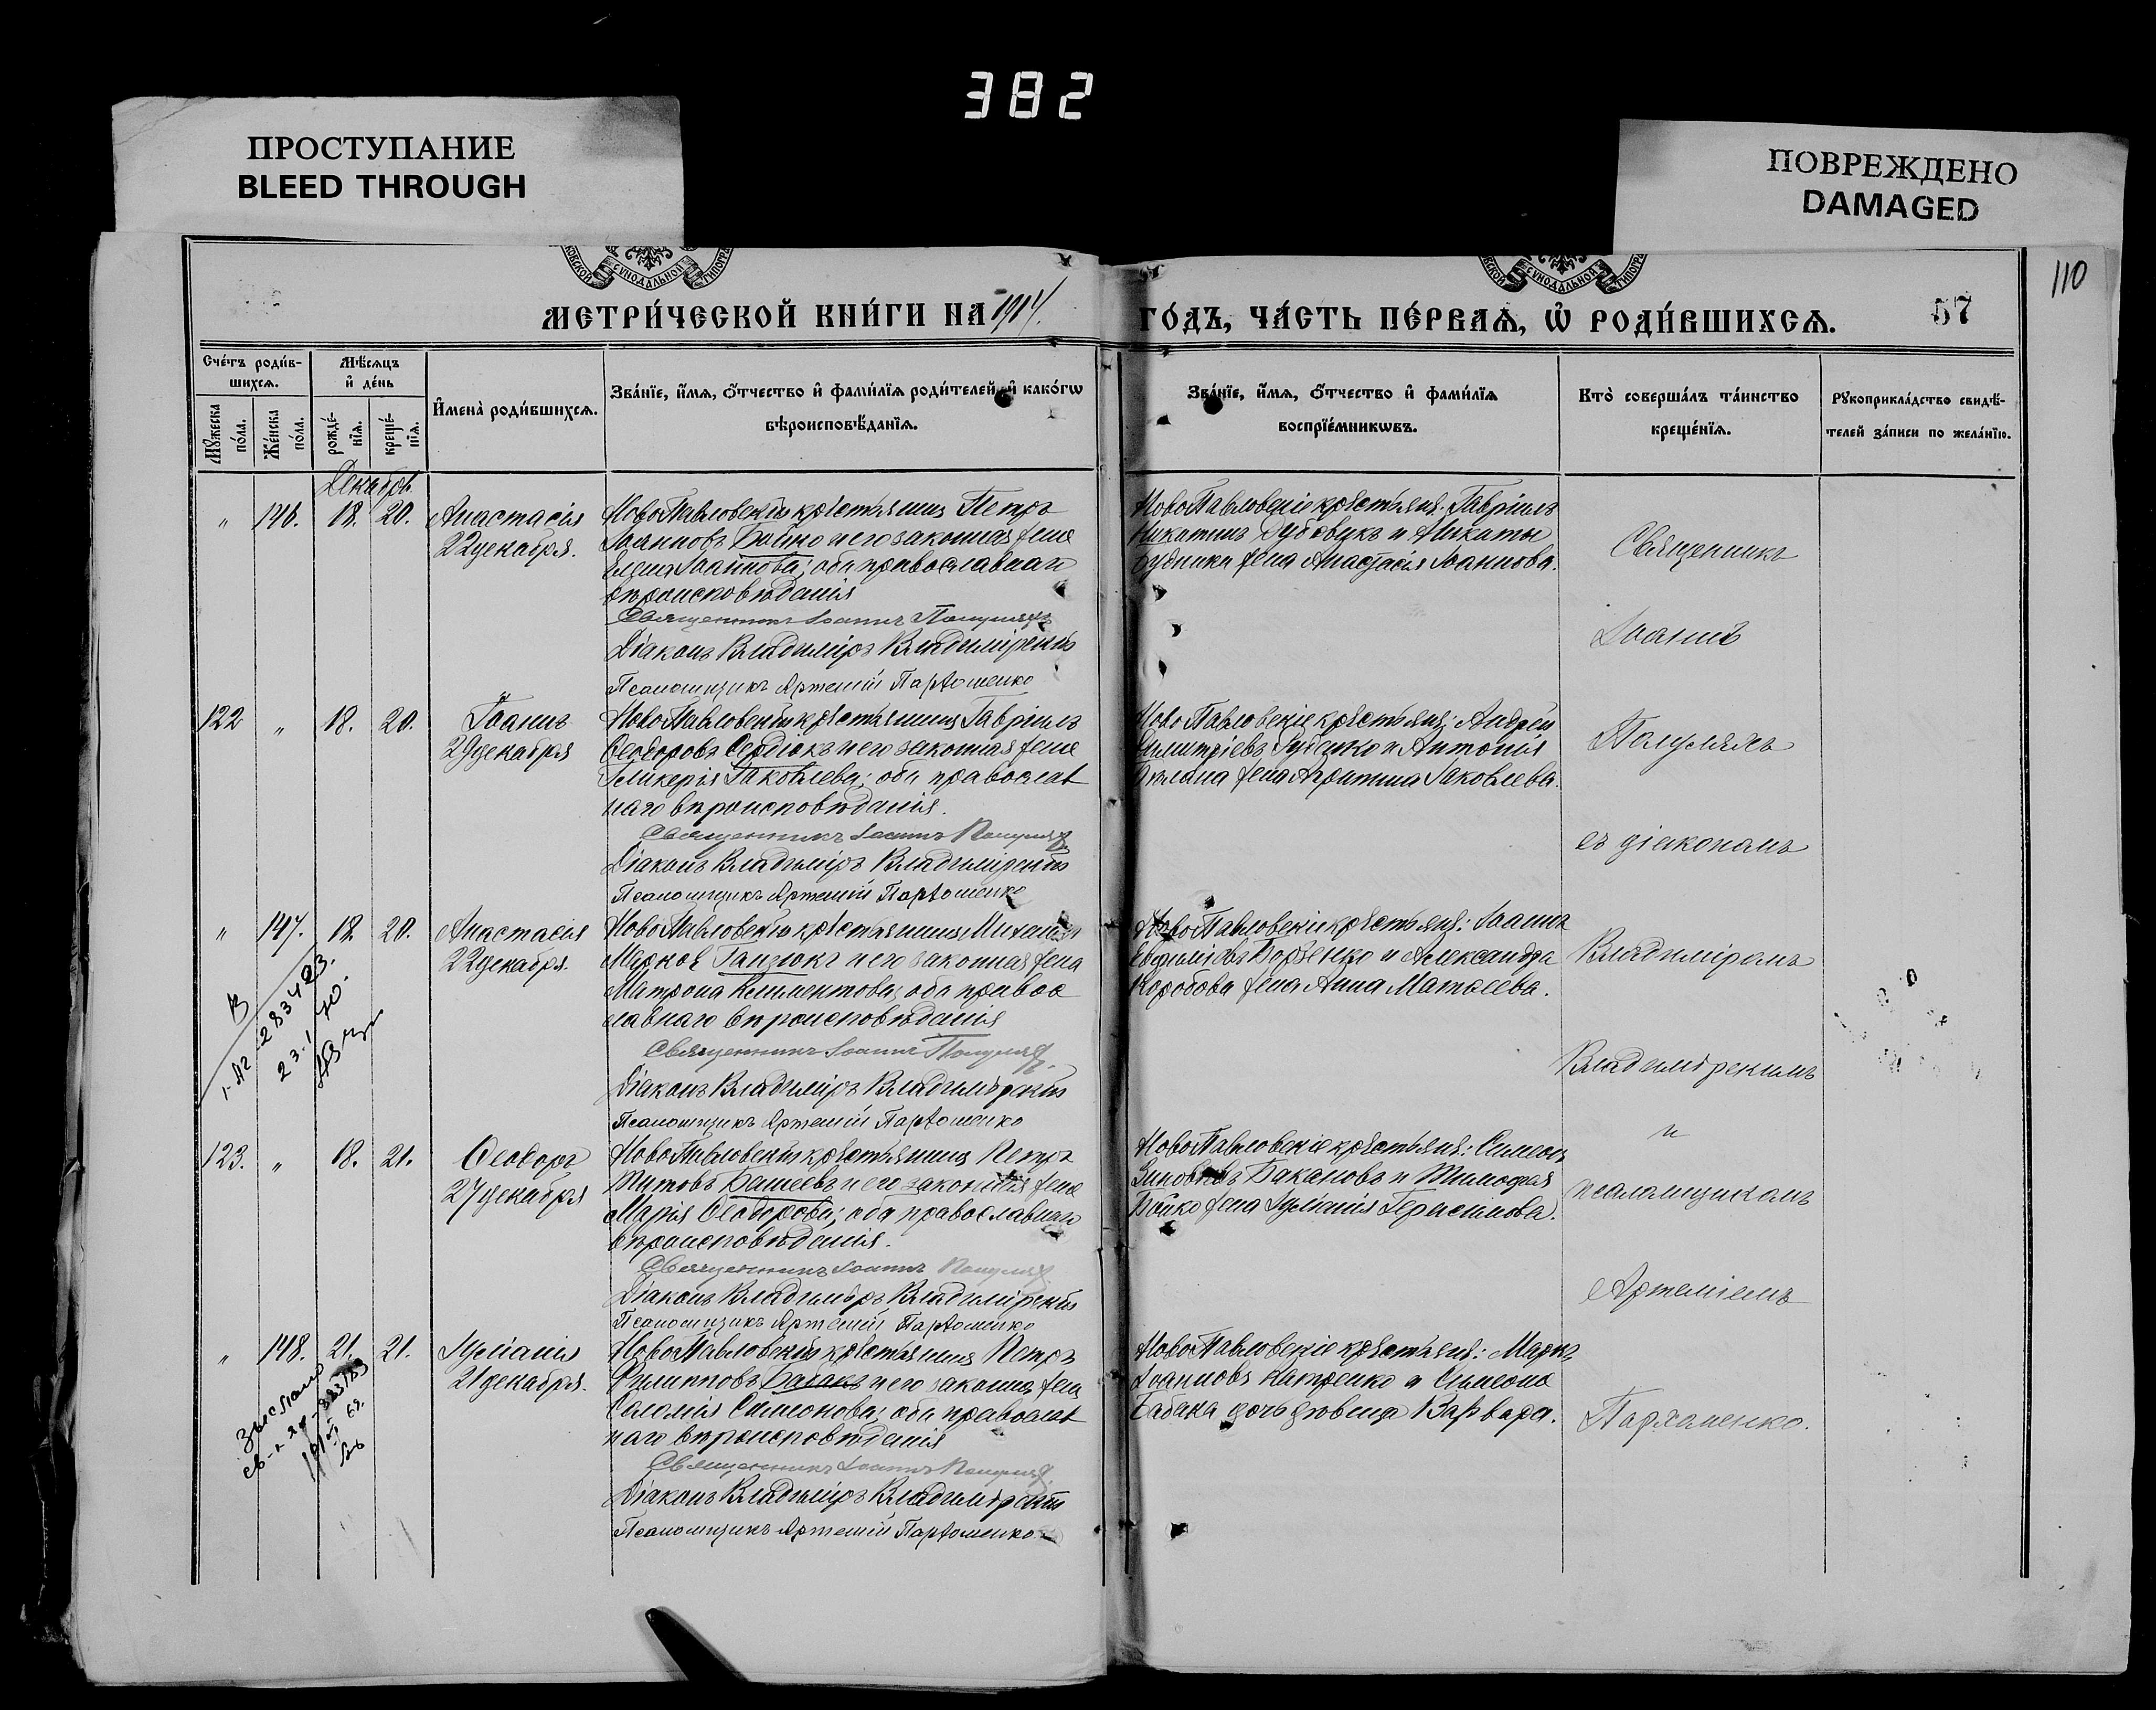 382
ПРОСТУПАНИЕ
BLEED THROUGH
ПОВРЕЖДЕНО
DAMAGED
110
СѴНОДАЛЬНОЙ
СѴНОДАЛЬНОЙ
МЕТРИ́ЧЕСКОЙ КНИ́ГИ НА 1914.
ГО́ДЪ, ЧА́СТЬ ПЕ́РВАѦ, Ѡ҆ РОДИ́ВШИХСѦ.
57
Сче́тъ роди́в-
шихсѧ.
Мѣ́сѧцъ
и҆ де́нь
Мꙋ́жеска
по́ла.
Же́нска
по́ла.
рожде́-
нїѧ.
креще́-
нїѧ.
И҆мена̀ роди́вшихсѧ.
Зва́нїе, и҆́мѧ, ѻ҆́тчество и҆ фами́лїѧ роди́телей, и҆ како́гѡ
вѣроисповѣ́данїѧ.
Зва́нїе, и҆́мѧ, ѻ҆́тчество и҆ фами́лїѧ
воспрїе́мникѡвъ.
Кто̀ соверша́лъ та́инство
креще́нїѧ.
Рꙋкоприкла́дство свидѣ́-
телей за́писи по жела́нїю.
Декабрь
" 146. 18. 20. Анастасія
22 декабря.
НовоПавловскій крестьянинъ Петръ
Іоанновъ Бойко и его законная жена
Іоаннова; оба православнаго
вѣроисповѣданія
Священникъ Іоаннъ Полулях
Діаконъ Владиміръ Владимірскій
Псаломщикъ Артемій Пархоменко
НовоПавловскіе крестьяне: Гавріилъ
Никитинъ Дубовикъ и Никиты
жена Анастасія Іоаннова.
Священникъ
Іоаннъ
122 " 18. 20. Іоаннъ
29 декабря
НовоПавловскій крестьянинъ Гавріилъ
Ѳеодоровъ Сердюкъ и его законная жена
Гликерія Іаковлева; оба православ
наго вѣроисповѣданія.
Священникъ Іоаннъ Полулях
Діаконъ Владиміръ Владимірскій
Псаломщикъ Артемій Пархоменко
НовоПавловскіе крестьяне: Андрей
Димитріевъ и Антонія
жена Іаковлева.
Полуляхъ
съ діакономъ
" 147. 18. 20. Анастасія
22 декабря.
НовоПавловскій крестьянинъ Михаилъ
Марковъ Ганзюкъ и его законная жена
Матрона Климентова; оба правос
лавнаго вѣроисповѣданія
Священникъ Іоаннъ Полулях
Діаконъ Владиміръ Владимірскій
Псаломщикъ Артемій Пархоменко
НовоПавловскіе крестьяне: Іоаннъ
Евѳиміевъ Борзенко и Александра
Коробова жена Анна Матѳеева.
Владиміромъ
Владимірскимъ
и
123. " 18. 21. Ѳеодоръ
27 декабря
НовоПавловскій крестьянинъ Петръ
Титовъ Башеевъ и его законная жена
Марія Ѳеодорова; оба православнаго
вѣроисповѣданія.
Священникъ Іоаннъ Полулях
Діаконъ Владиміръ Владимірскій
Псаломщикъ Артемій Пархоменко
НовоПавловскіе крестьяне: Симеонъ
Бакановъ и Тимофея
Бойко жена Іуліанія Герасимова.
псаломщикомъ
Артеміемъ
" 148. 21. 21. Іуліанія
21 декабря.
НовоПавловскій крестьянинъ Петръ
Филипповъ и его законная жена
Саломія Симеонова; оба православ
наго вѣроисповѣданія
Священникъ Іоаннъ Полулях
Діаконъ Владиміръ Владимірскій
Псаломщикъ Артемій Пархоменко
НовоПавловскіе крестьяне: Маркъ
Іоанновъ и Симеона
дочь дѣвица Варвара.
Пархоменко.